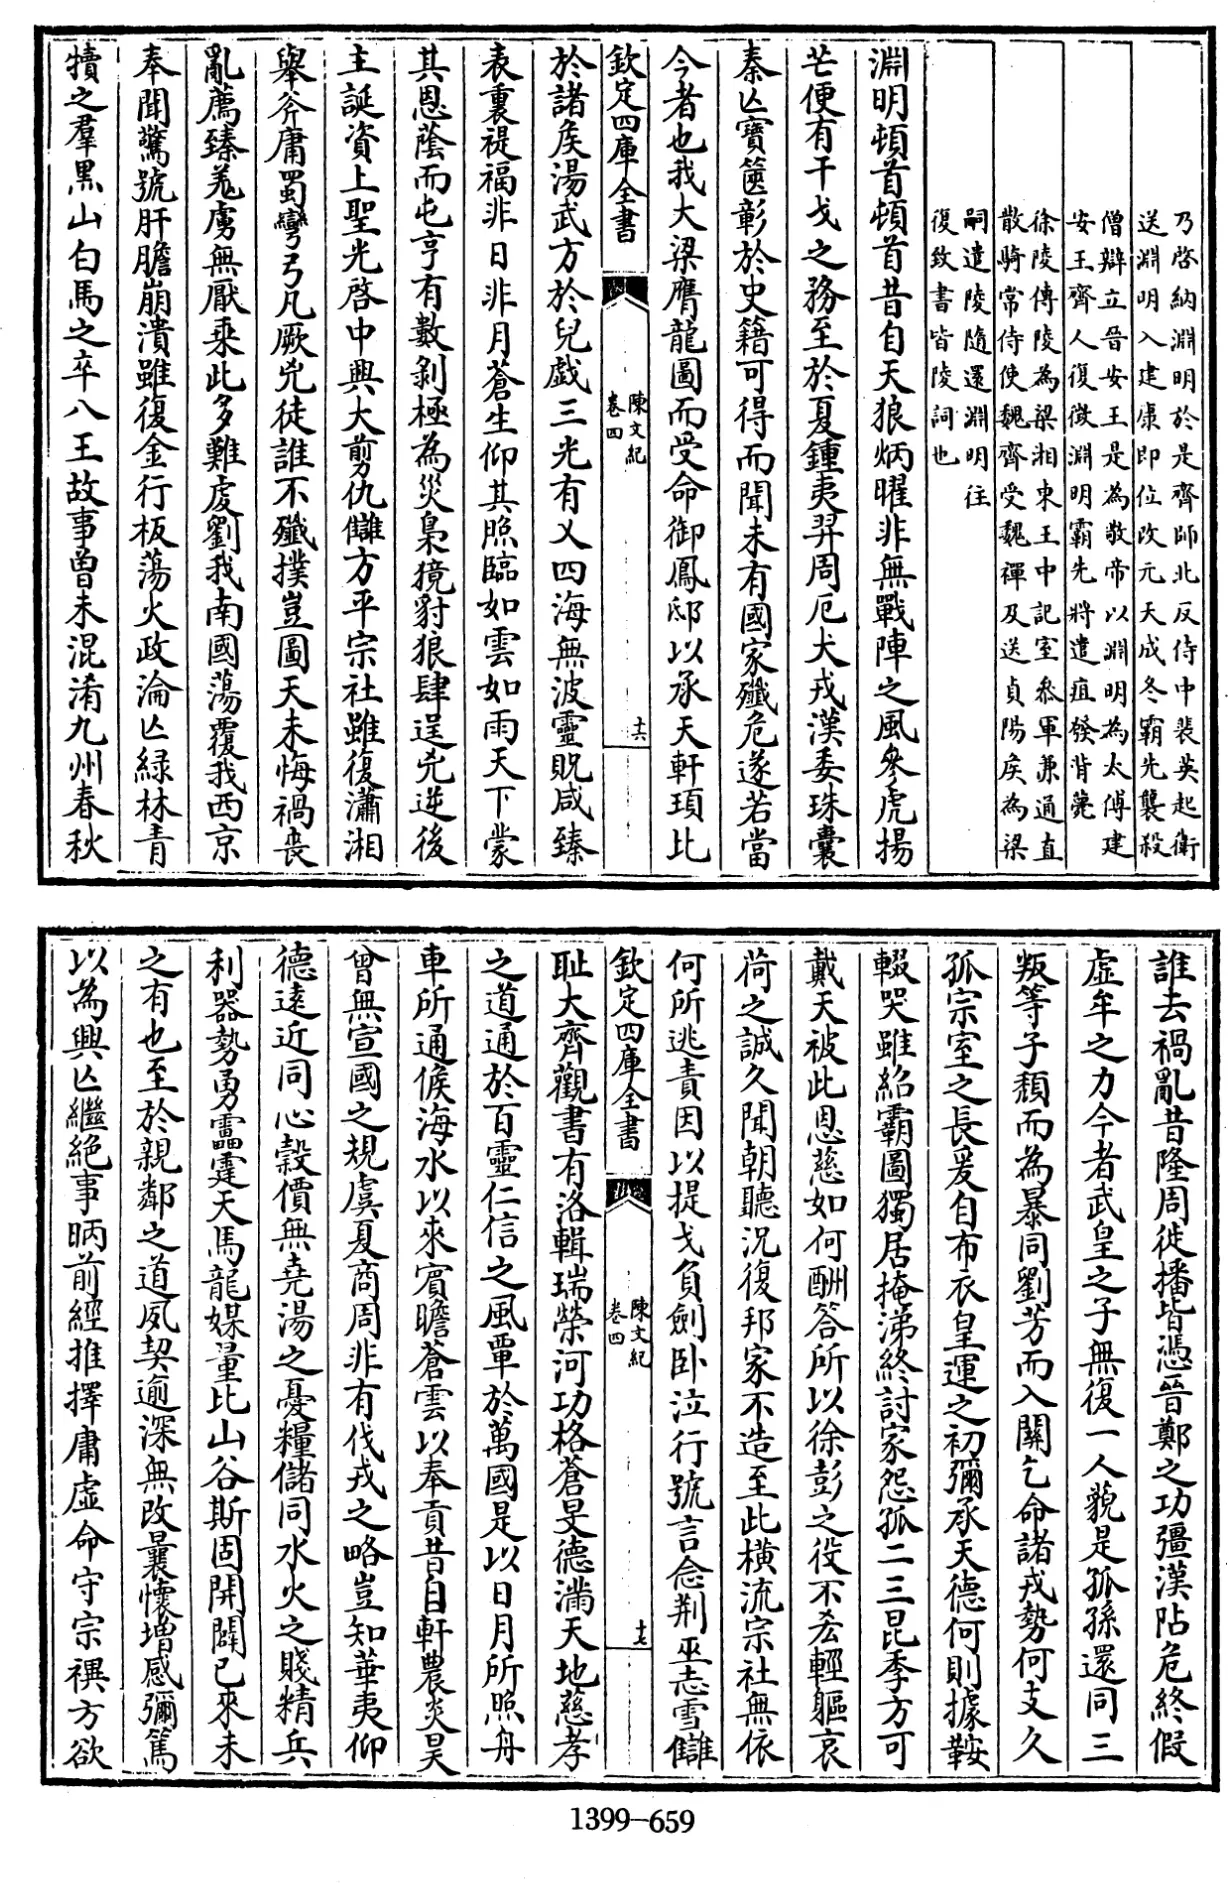 乃啓納淵明於是齊師北反侍中裴英起衛
送淵明入建康即位改元天成冬霸先襲殺
僧辯立晉安王是為敬帝以淵明為太傅建
安王齊人復徴淵明霸先將遣疽發背薨
徐陵傳陵為梁湘東王中記室叅軍兼通直
散騎常侍使魏齊受魏禪及送貞陽侯為梁
嗣遣陵隨還淵明往
復致書皆陵詞也
淵明頓首頓首昔自天狼炳曜非無戰陣之風參虎揚
芒便有干戈之務至於夏鍾夷羿周厄犬戎漢委珠囊
秦亾寶篋彰於史籍可得而聞未有國家殲危遂若當
今者也我大梁膺龍圖而受命御鳳邸以承天軒頊比
欽定四庫全書
陳文紀
卷四
十六
於諸侯湯武方於兒戲三光有乂四海無波靈貺咸臻
表裏禔福非日非月蒼生仰其照臨如雲如雨天下蒙
其恩蔭而屯亨有數剝極為災梟獍豺狼肆逞兇逆後
主誕資上聖光啓中興大剪仇讎方平宗社雖復瀟湘
舉斧庸蜀彎弓凡厥兇徒誰不殲撲豈圖天未悔禍喪
亂薦臻羗虜無厭乗此多難虔劉我南國蕩覆我西京
奉聞驚號肝膽崩潰雖復金行板蕩火政淪亾緑林青
犢之羣黒山白馬之卒八王故事曽未混淆九州春秋
誰去禍亂昔隆周徙播皆憑晉鄭之功彊漢阽危終假
虛牟之力今者武皇之子無復一人藐是孤孫還同三
叛等子頽而為暴同劉芳而入關乞命諸戎勢何支久
孤宗室之長爰自布衣皇運之初彌承天德何則據鞍
輟哭雖紹霸圖獨居掩涕終討家怨孤二三昆季方可
戴天被此恩慈如何酬答所以徐彭之役不吝輕軀哀
荷之誠久聞朝聽況復邦家不造至此横流宗社無依
何所逃責因以提戈負劍卧泣行號言念荆巫志雪讎
欽定四庫全書
陳文紀
卷四
十七
耻大齊觀書有洛輯瑞榮河功格蒼旻德滿天地慈孝
之道通於百靈仁信之風覃於萬國是以日月所照舟
車所通候海水以來賓瞻蒼雲以奉貢昔自軒農炎昊
曾無宣國之規虞夏商周非有伐戎之略豈知華夷仰
德逺近同心穀價無堯湯之憂糧儲同水火之賤精兵
利器勢勇靁霆天馬龍媒量比山谷斯固開闢已來未
之有也至於親鄰之道夙契逾深無改曩懷增感彌篤
以為興亾繼絶事昞前經推擇庸虛命守宗禩方欲
1399-659